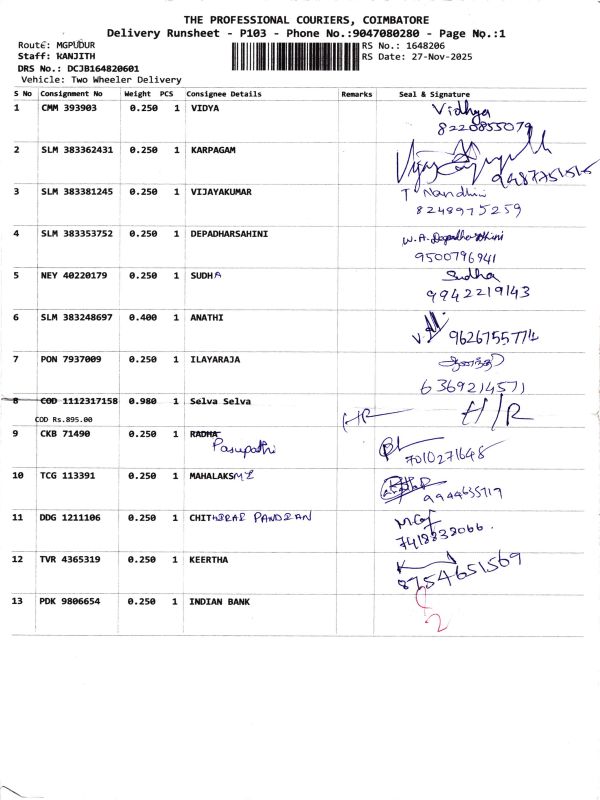 THE PROFESSIONAL COURIERS, COIMBATORE
Delivery Runsheet - P103 - Phone No.:9047080280 - Page No.:1
Route: MGPUDUR
RS No.: 1648206
Staff: KANJITH
RS Date: 27-Nov-2025
DRS No.: DCJB164820601
Vehicle: Two Wheeler Delivery
S No Consignment No Weight PCS Consignee Details Remarks Seal & Signature
1 CMM 393903 0.250 1 VIDYA Vidhya
8220855079
2 SLM 383362431 0.250 1 KARPAGAM
9487751515
3 SLM 383381245 0.250 1 VIJAYAKUMAR T Nandhini
8248975259
4 SLM 383353752 0.250 1 DEPADHARSAHINI W.A.
9500796941
5 NEY 40220179 0.250 1 SUDHA Sudha
9942219143
6 SLM 383248697 0.400 1 ANATHI
9626755774
7 PON 7937009 0.250 1 ILAYARAJA ஆனந்தி
6369214571
8 COD 1112317158 0.980 1 Selva Selva HR H/R
COD Rs.895.00
9 CKB 71490 0.250 1 RADHA
Pasupathi
7010271648
10 TCG 113391 0.250 1 MAHALAKSMI
9944635717
11 DDG 1211106 0.250 1 CHITHIRAI PANDIAN
7418838066.
12 TVR 4365319 0.250 1 KEERTHA
8754651569
13 PDK 9806654 0.250 1 INDIAN BANK
2